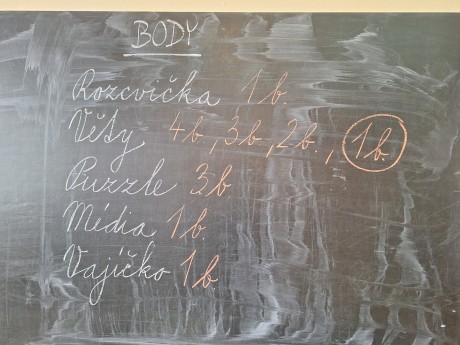 BODY
Rozcvička 1b.
Věty 4b, 3b, 2b., 1b.
Puzzle 3b
Média 1b.
Vajíčko 1b